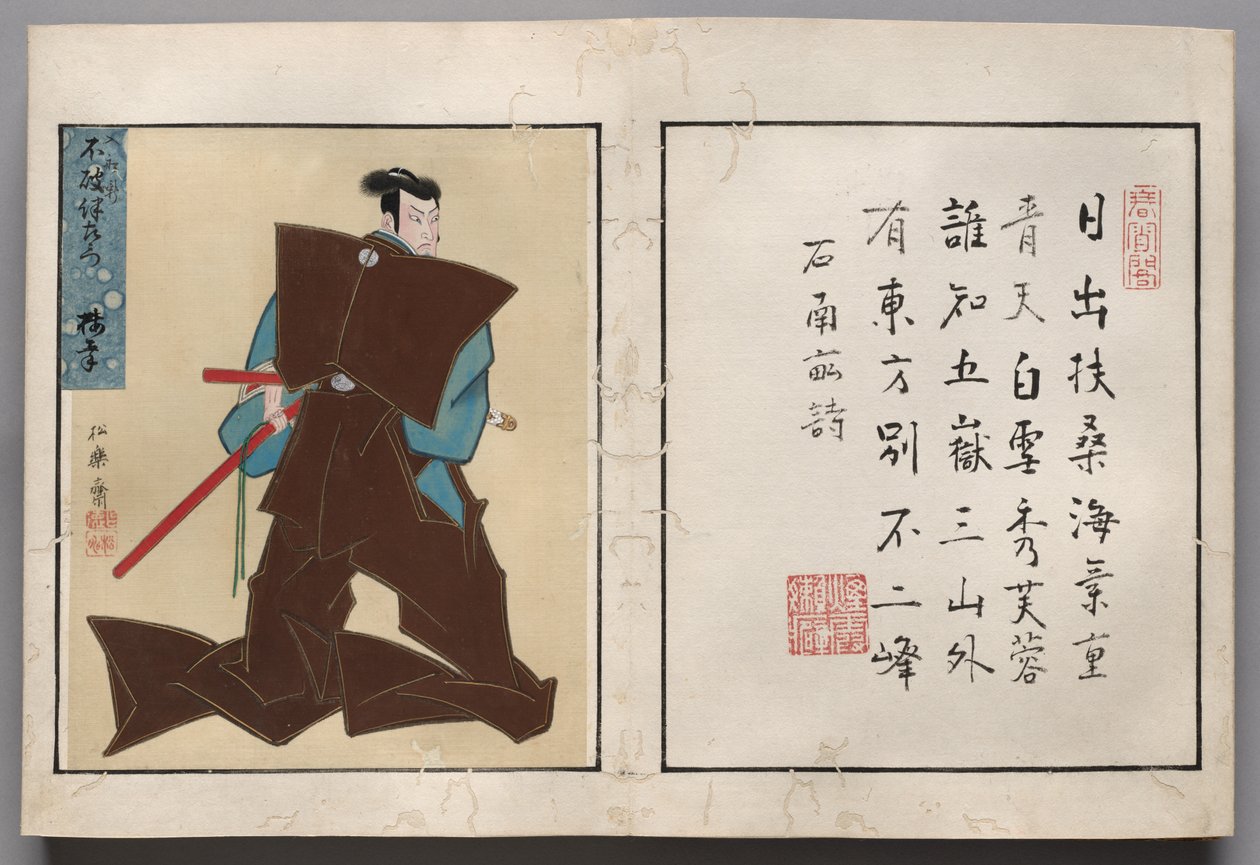 日出扶桑海氣重
青天白雪秀芙蓉
誰知五嶽三山外
有東方別不二峰
石南畝詩
不破伴左衛門
梅幸
松樂齋